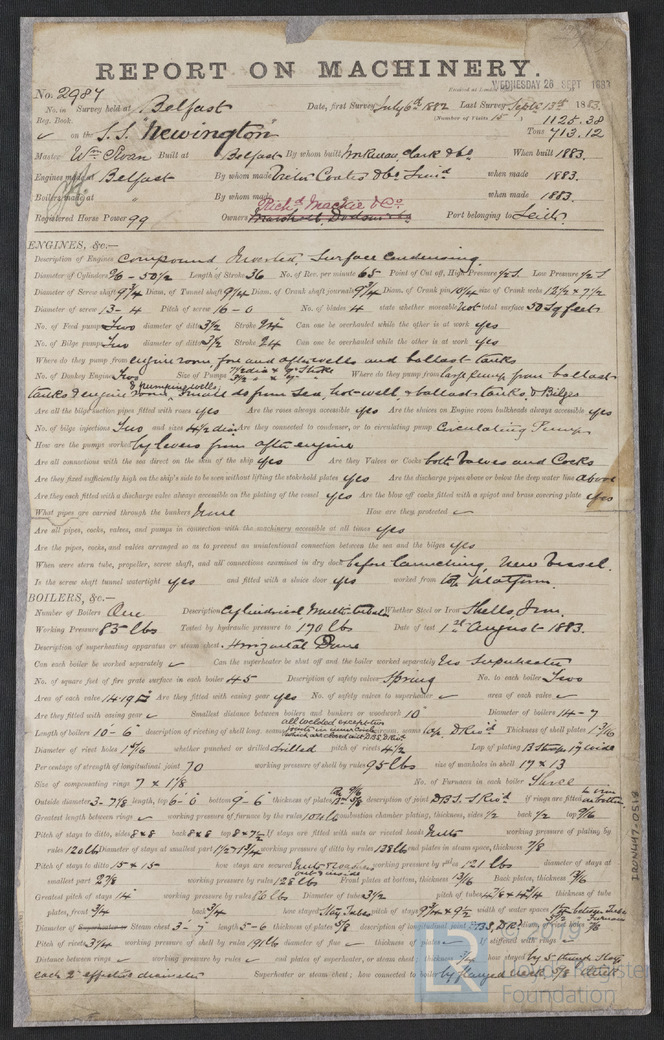 REPORT ON MACHINERY.
No. 2987
WEDNESDAY 26 SEPT 1883
No. in Survey held at Belfast Date, first Survey July 6th 1882 Last Survey Septr 13th 1883.
Reg. Book. (Number of Visits 15)
on the S.S. "Newington" Tons 1125.38
713.12
Master Wm Swan Built at Belfast By whom built Workman, Clark & Co When built 1883.
Engines made at Belfast By whom made Victor Coates & Co Limd when made 1883.
Boilers made at " By whom made when made 1883.
Richd Mackie & Co
Registered Horse Power 99 Owners Port belonging to Leith
ENGINES, &c.—
Description of Engines Compound Inverted, Surface Condensing
Diameter of Cylinders 26 - 50½ Length of Stroke 36 No. of Rev. per minute 65 Point of Cut off, High Pressure ½ S Low Pressure ½ S
Diameter of Screw shaft 9¾ Diam. of Tunnel shaft 9¼ Diam. of Crank shaft journals 9¾ Diam. of Crank pin 10¼ size of Crank webs 12½ × 7½
Diameter of screw 13-4 Pitch of screw 16-0 No. of blades 4 state whether moveable Not total surface 50 Sq feet
No. of Feed pumps Two diameter of ditto 3½ Stroke 24 Can one be overhauled while the other is at work yes
No. of Bilge pumps Two diameter of ditto 3½ Stroke 24 Can one be overhauled while the other is at work yes
Where do they pump from engine room, fore and after wells and ballast tanks
No. of Donkey Engines Two Size of Pumps Where do they pump from large pump from ballast
tanks & engine room, small do from sea, hot-well, & ballast tanks, & Bilges
Are all the bilge suction pipes fitted with roses yes Are the roses always accessible yes Are the sluices on Engine room bulkheads always accessible yes
No. of bilge injections Two and sizes 4½ dia Are they connected to condenser, or to circulating pump Circulating Pump
How are the pumps worked by levers from after engine
Are all connections with the sea direct on the skin of the ship yes Are they Valves or Cocks both Valves and Cocks
Are they fixed sufficiently high on the ship's side to be seen without lifting the stokehold plates yes Are the discharge pipes above or below the deep water line above
Are they each fitted with a discharge valve always accessible on the plating of the vessel yes Are the blow off cocks fitted with a spigot and brass covering plate yes
What pipes are carried through the bunkers None How are they protected
Are all pipes, cocks, valves, and pumps in connection with the machinery accessible at all times yes
Are the pipes, cocks, and valves arranged so as to prevent an unintentional connection between the sea and the bilges yes
When were stern tube, propeller, screw shaft, and all connections examined in dry dock before launching, New Vessel.
Is the screw shaft tunnel watertight yes and fitted with a sluice door yes worked from top platform.
BOILERS, &c.—
Number of Boilers One Description Cylindrical Multitubular Whether Steel or Iron Shells, Iron.
Working Pressure 85 lbs Tested by hydraulic pressure to 170 lbs Date of test 1st August 1883.
Description of superheating apparatus or steam chest Horizontal Dome
Can each boiler be worked separately Can the superheater be shut off and the boiler worked separately No Superheater
No. of square feet of fire grate surface in each boiler 45 Description of safety valves Spring No. to each boiler Two
Area of each valve 14.19 Are they fitted with easing gear yes No. of safety valves to superheater area of each valve
Are they fitted with easing gear Smallest distance between boilers and bunkers or woodwork 10 Diameter of boilers 14-7
Length of boilers 10-6 description of riveting of shell long. seams circum. seams Lap, D Rivd Thickness of shell plates 1 3/16
Diameter of rivet holes 1 3/16 whether punched or drilled drilled pitch of rivets 4½ Lap of plating B Straps 17 wide
Percentage of strength of longitudinal joint 70 working pressure of shell by rules 95 lbs size of manholes in shell 17 × 13
Size of compensating rings 7 × 1⅛ No. of Furnaces in each boiler Three
Outside diameter 3-7⅛ length, top 6-0 bottom 9-6 thickness of plates description of joint DBS. S Rivd if rings are fitted
Greatest length between rings working pressure of furnace by the rules combustion chamber plating, thickness, sides ½ back ½ top 9/16
Pitch of stays to ditto, sides 8 × 8 back 8 × 8 top 8 × 7½ If stays are fitted with nuts or riveted heads Nuts working pressure of plating by
rules 120 lbs Diameter of stays at smallest part working pressure of ditto by rules 138 lbs end plates in steam space, thickness ⅞
Pitch of stays to ditto 15 × 15 how stays are secured Nuts & washers working pressure by rules 121 lbs diameter of stays at
smallest part 2⅞ working pressure by rules 128 lbs Front plates at bottom, thickness 13/16 Back plates, thickness
Greatest pitch of stays 14 working pressure by rules Diameter of tubes 3½ pitch of tubes thickness of tube
plates, front ¾ back ¾ how stayed Stay Tubes pitch of stays width of water spaces
Diameter of Steam chest 3-7 length 5-6 thickness of plates description of longitudinal joint
Pitch of rivets working pressure of shell by rules 191 lbs diameter of flue thickness of plates If stiffened with rings
Distance between rings working pressure by rules end plates of superheater, or steam chest; thickness how stayed by 5 through Stays
each 2 effective diameter Superheater or steam chest; how connected to boiler by flanged neck
IRON447-0518
© 2019
Lloyd's Register
Foundation
LR